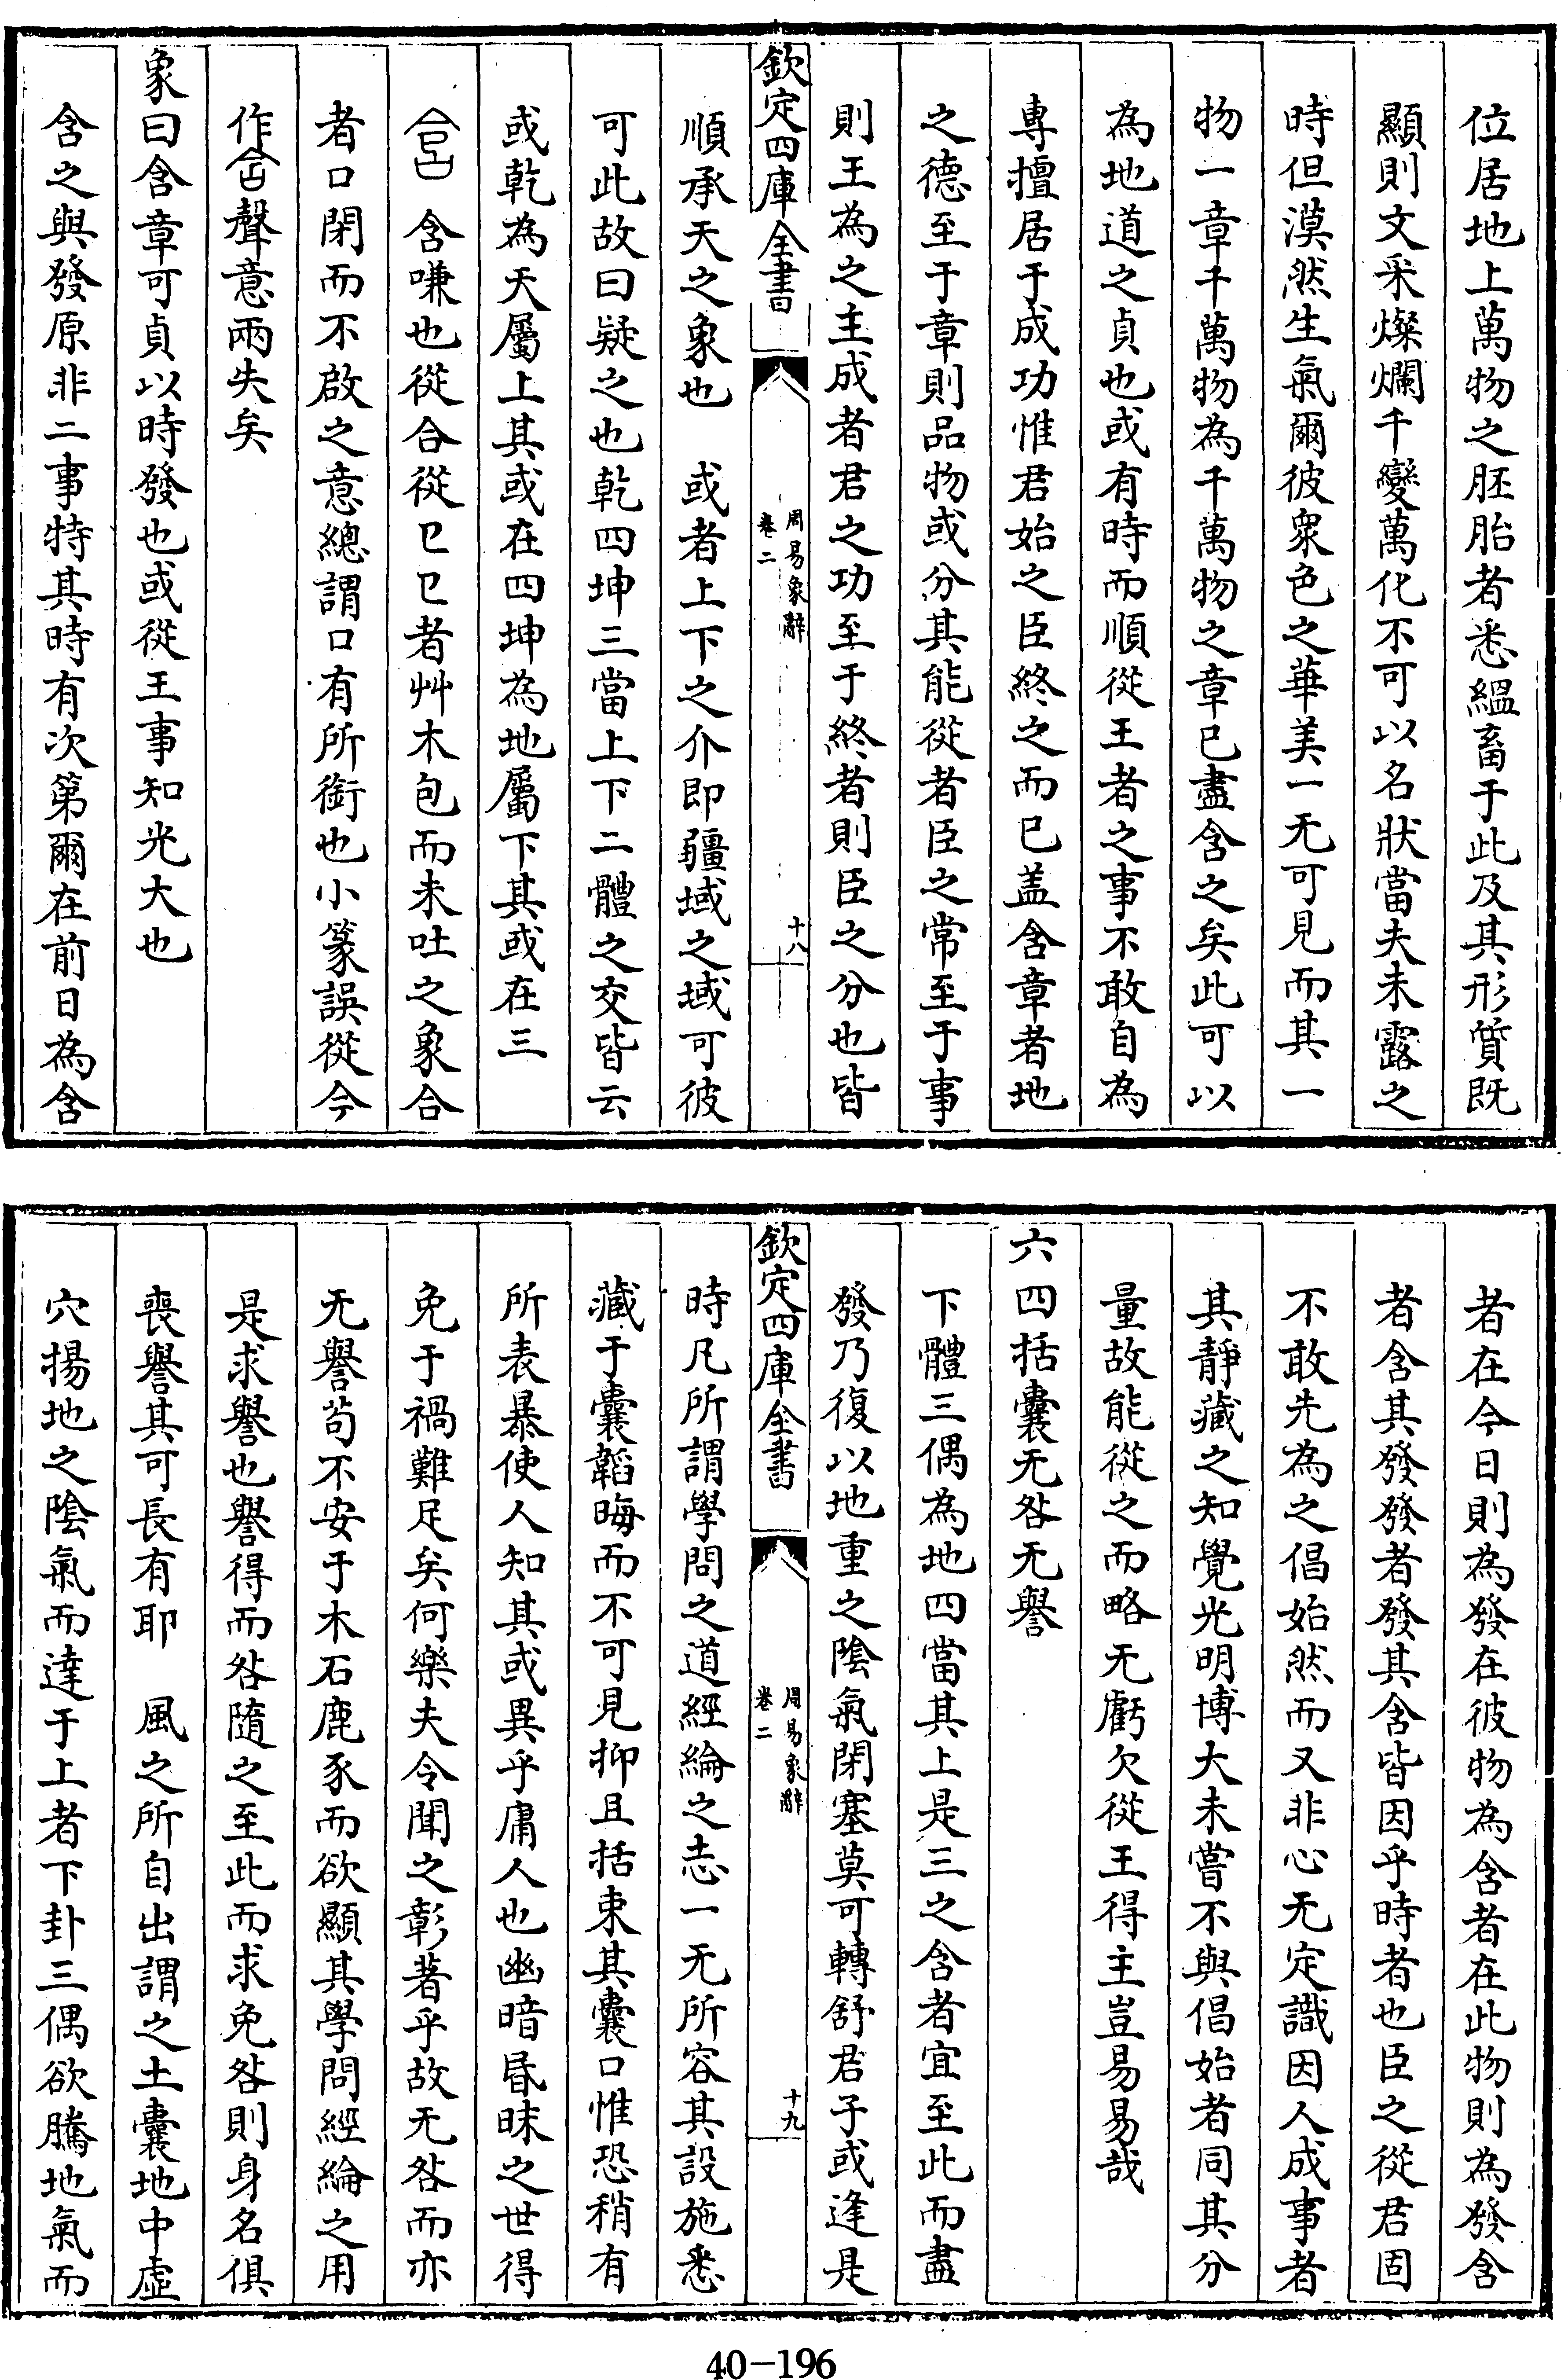 位居地上萬物之胚胎者悉緼畜于此及其形質既
顯則文采燦爛千變萬化不可以名狀當夫未露之
時但漠然生氣爾彼衆色之華美一无可見而其一
物一章千萬物為千萬物之章已盡含之矣此可以
為地道之貞也或有時而順從王者之事不敢自為
專擅居于成功惟君始之臣終之而已盖含章者地
之德至于章則品物或分其能從者臣之常至于事
則王為之主成者君之功至于終者則臣之分也皆
欽定四庫全書
周易象辭
卷二
十八
順承天之象也　或者上下之介即疆域之域可彼
可此故曰疑之也乾四坤三當上下二體之交皆云
或乾為天屬上其或在四坤為地屬下其或在三
含嗛也從合從㔾㔾者艸木包而未吐之象合
者口閉而不啟之意總謂口有所銜也小篆誤從今
作聲意兩失矣
象曰含章可貞以時發也或從王事知光大也
含之與發原非二事特其時有次第爾在前日為含
者在今日則為發在彼物為含者在此物則為發含
者含其發發者發其含皆因乎時者也臣之從君固
不敢先為之倡始然而又非心无定識因人成事者
其靜藏之知覺光明博大未嘗不與倡始者同其分
量故能從之而略无虧欠從王得主豈易易哉
六四括囊无咎无譽
下體三偶為地四當其上是三之含者宜至此而盡
發乃復以地重之陰氣閉塞莫可轉舒君子或逢是
欽定四庫全書
周易象辭
卷二
十九
時凡所謂學問之道經綸之志一无所容其設施悉
藏于囊韜晦而不可見抑且括束其囊口惟恐稍有
所表暴使人知其或異乎庸人也幽暗昏昧之世得
免于禍難足矣何樂夫令聞之彰著乎故无咎而亦
无譽苟不安于木石鹿豕而欲顯其學問經綸之用
是求譽也譽得而咎隨之至此而求免咎則身名俱
喪譽其可長有耶　風之所自出謂之土囊地中虛
穴揚地之陰氣而達于上者下卦三偶欲騰地氣而
40-196